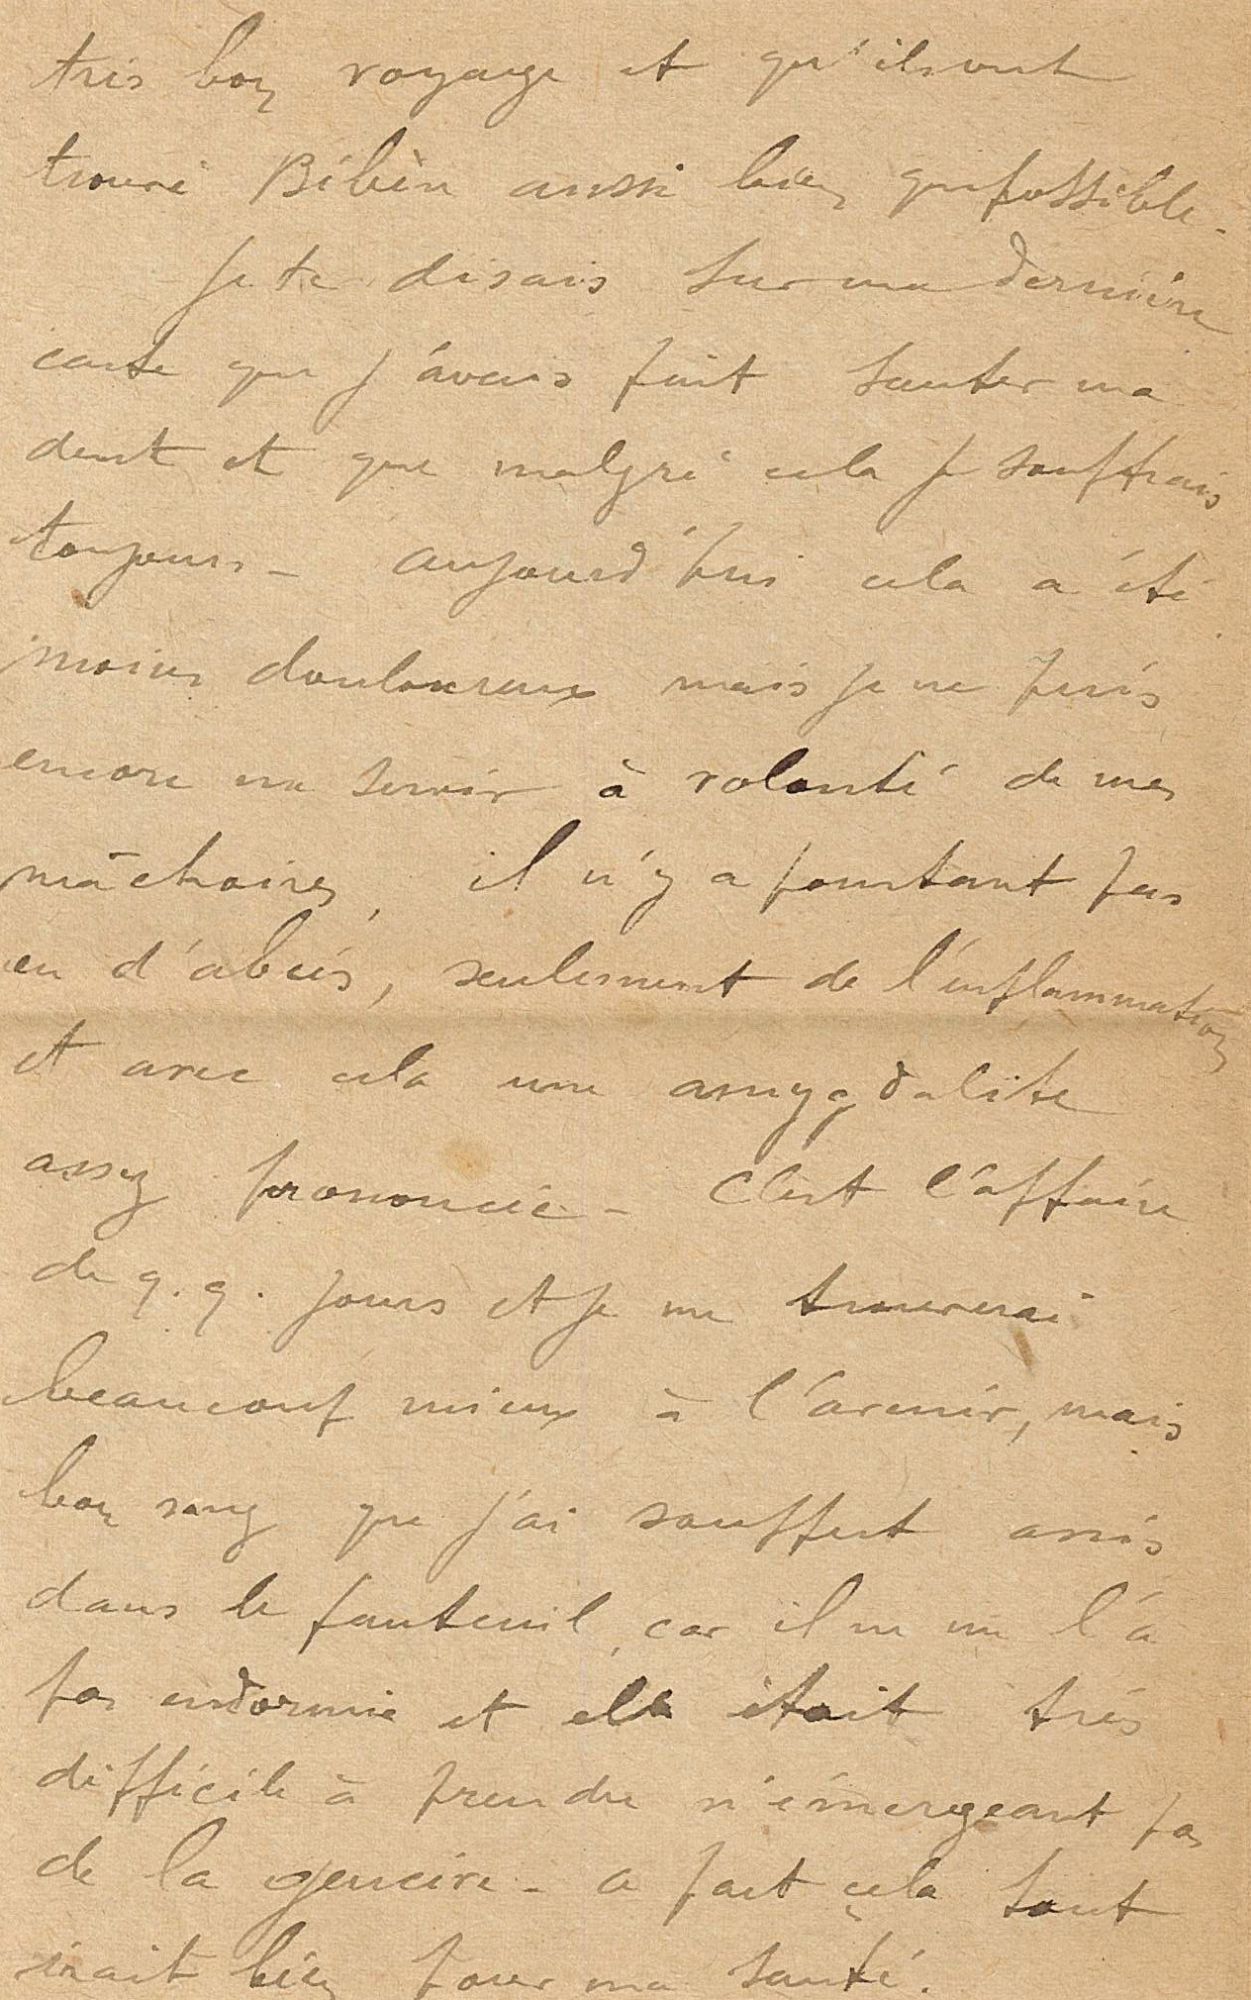 très bon voyage et qu'ils ont
trouvé Bébèn aussi bien que possible.
Je te disais sur ma dernière
carte que j'avais fait sauter ma
dent et que malgré cela je souffrais
toujours - aujourd'hui cela a été
moins douloureux mais je ne puis
encore me servir à volonté de mes
mâchoires, il n'y a pourtant pas
eu d'abcès, seulement de l'inflammation
et avec cela une amygdalite
assez prononcée - C'est l'affaire
de q.q. jours et je me trouverai
beaucoup mieux à l'avenir, mais
bon sang que j'ai souffert assis
dans le fauteuil, car il ne me l'a
pas endormie et elle était très
difficile à prendre n'émergeant pas
de la gencive - a part cela tout
irait bien pour ma santé.